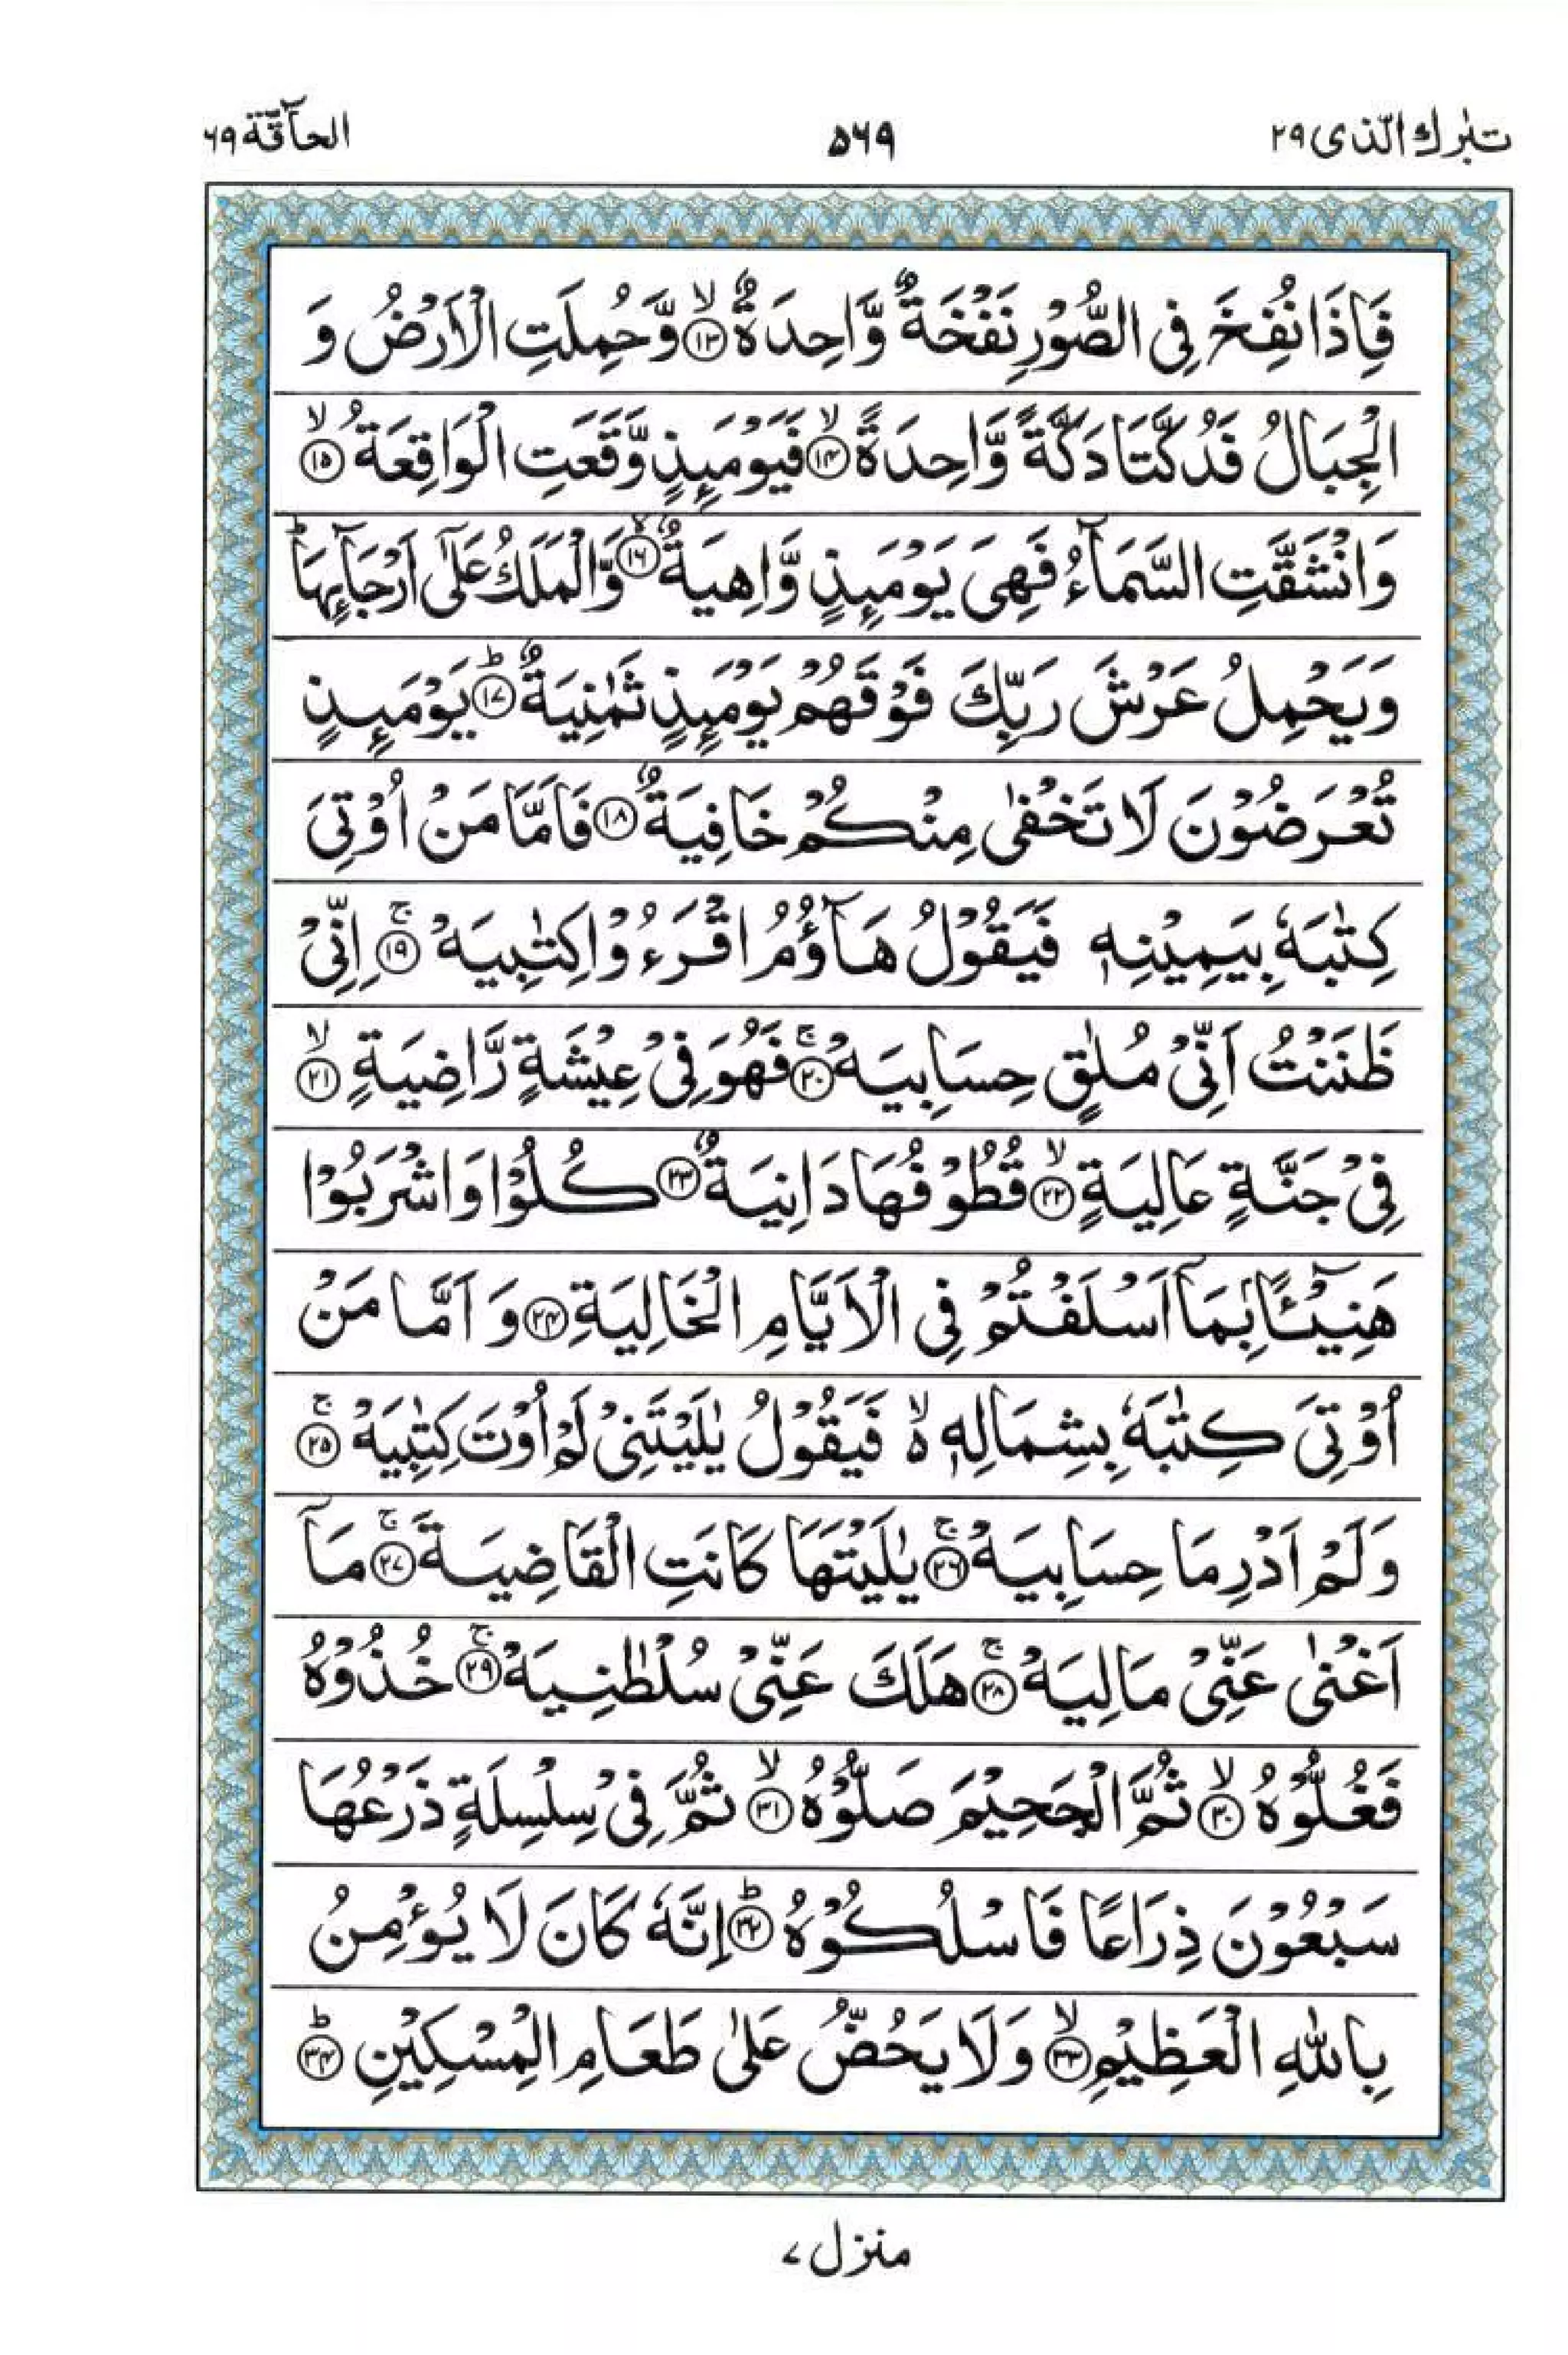 تبٰرك الّذی ۲۹ ۵۶۹ الحآقّة ۶۹
فَاِذَا نُفِخَ فِی الصُّوْرِ نَفْخَةٌ وَّاحِدَةٌ ۙ﴿۱۳﴾ وَّحُمِلَتِ الْاَرْضُ وَ
الْجِبَالُ فَدُكَّتَا دَكَّةً وَّاحِدَةً ۙ﴿۱۴﴾ فَیَوْمَىِٕذٍ وَّقَعَتِ الْوَاقِعَةُ ۙ﴿۱۵﴾
وَانْشَقَّتِ السَّمَآءُ فَهِیَ یَوْمَىِٕذٍ وَّاهِیَةٌ ۙ﴿۱۶﴾ وَّالْمَلَكُ عَلٰۤی اَرْجَآىِٕهَا ؕ
وَیَحْمِلُ عَرْشَ رَبِّكَ فَوْقَهُمْ یَوْمَىِٕذٍ ثَمٰنِیَةٌ ؕ﴿۱۷﴾ یَوْمَىِٕذٍ
تُعْرَضُوْنَ لَا تَخْفٰی مِنْكُمْ خَافِیَةٌ ﴿۱۸﴾ فَاَمَّا مَنْ اُوْتِیَ
كِتٰبَهٗ بِیَمِیْنِهٖ فَیَقُوْلُ هَآؤُمُ اقْرَءُوْا كِتٰبِیَهْ ۚ﴿۱۹﴾ اِنِّیْ
ظَنَنْتُ اَنِّیْ مُلٰقٍ حِسَابِیَهْ ۚ﴿۲۰﴾ فَهُوَ فِیْ عِیْشَةٍ رَّاضِیَةٍ ۙ﴿۲۱﴾
فِیْ جَنَّةٍ عَالِیَةٍ ۙ﴿۲۲﴾ قُطُوْفُهَا دَانِیَةٌ ﴿۲۳﴾ كُلُوْا وَاشْرَبُوْا
هَنِیْٓـًٔۢا بِمَاۤ اَسْلَفْتُمْ فِی الْاَیَّامِ الْخَالِیَةِ ﴿۲۴﴾ وَ اَمَّا مَنْ
اُوْتِیَ كِتٰبَهٗ بِشِمَالِهٖ ۙ۬ فَیَقُوْلُ یٰلَیْتَنِیْ لَمْ اُوْتَ كِتٰبِیَهْ ۚ﴿۲۵﴾
وَلَمْ اَدْرِ مَا حِسَابِیَهْ ۚ﴿۲۶﴾ یٰلَیْتَهَا كَانَتِ الْقَاضِیَةَ ۚ﴿۲۷﴾ مَاۤ
اَغْنٰی عَنِّیْ مَالِیَهْ ۚ﴿۲۸﴾ هَلَكَ عَنِّیْ سُلْطٰنِیَهْ ۚ﴿۲۹﴾ خُذُوْهُ
فَغُلُّوْهُ ۙ﴿۳۰﴾ ثُمَّ الْجَحِیْمَ صَلُّوْهُ ۙ﴿۳۱﴾ ثُمَّ فِیْ سِلْسِلَةٍ ذَرْعُهَا
سَبْعُوْنَ ذِرَاعًا فَاسْلُكُوْهُ ؕ﴿۳۲﴾ اِنَّهٗ كَانَ لَا یُؤْمِنُ
بِاللّٰهِ الْعَظِیْمِ ۙ﴿۳۳﴾ وَلَا یَحُضُّ عَلٰی طَعَامِ الْمِسْكِیْنِ ؕ﴿۳۴﴾
منزل ۷